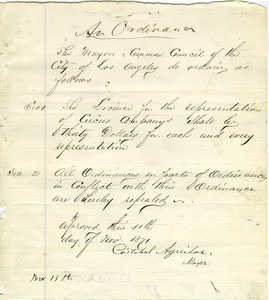 An Ordinance
The Mayor & Common Council of the
City of Los Angeles do ordain as
follows
Sec 1 The Licence for the representations
of Circus Companys Shall be
Thirty Dollars for each and every
representation
Sec 2 All Ordinances or parts of Ordinances
in Conflict with this Ordinance
are hereby repealed
Approved this 11th
day of Nov 1871
Cristobal Aguilar
Mayor
Nov 13th